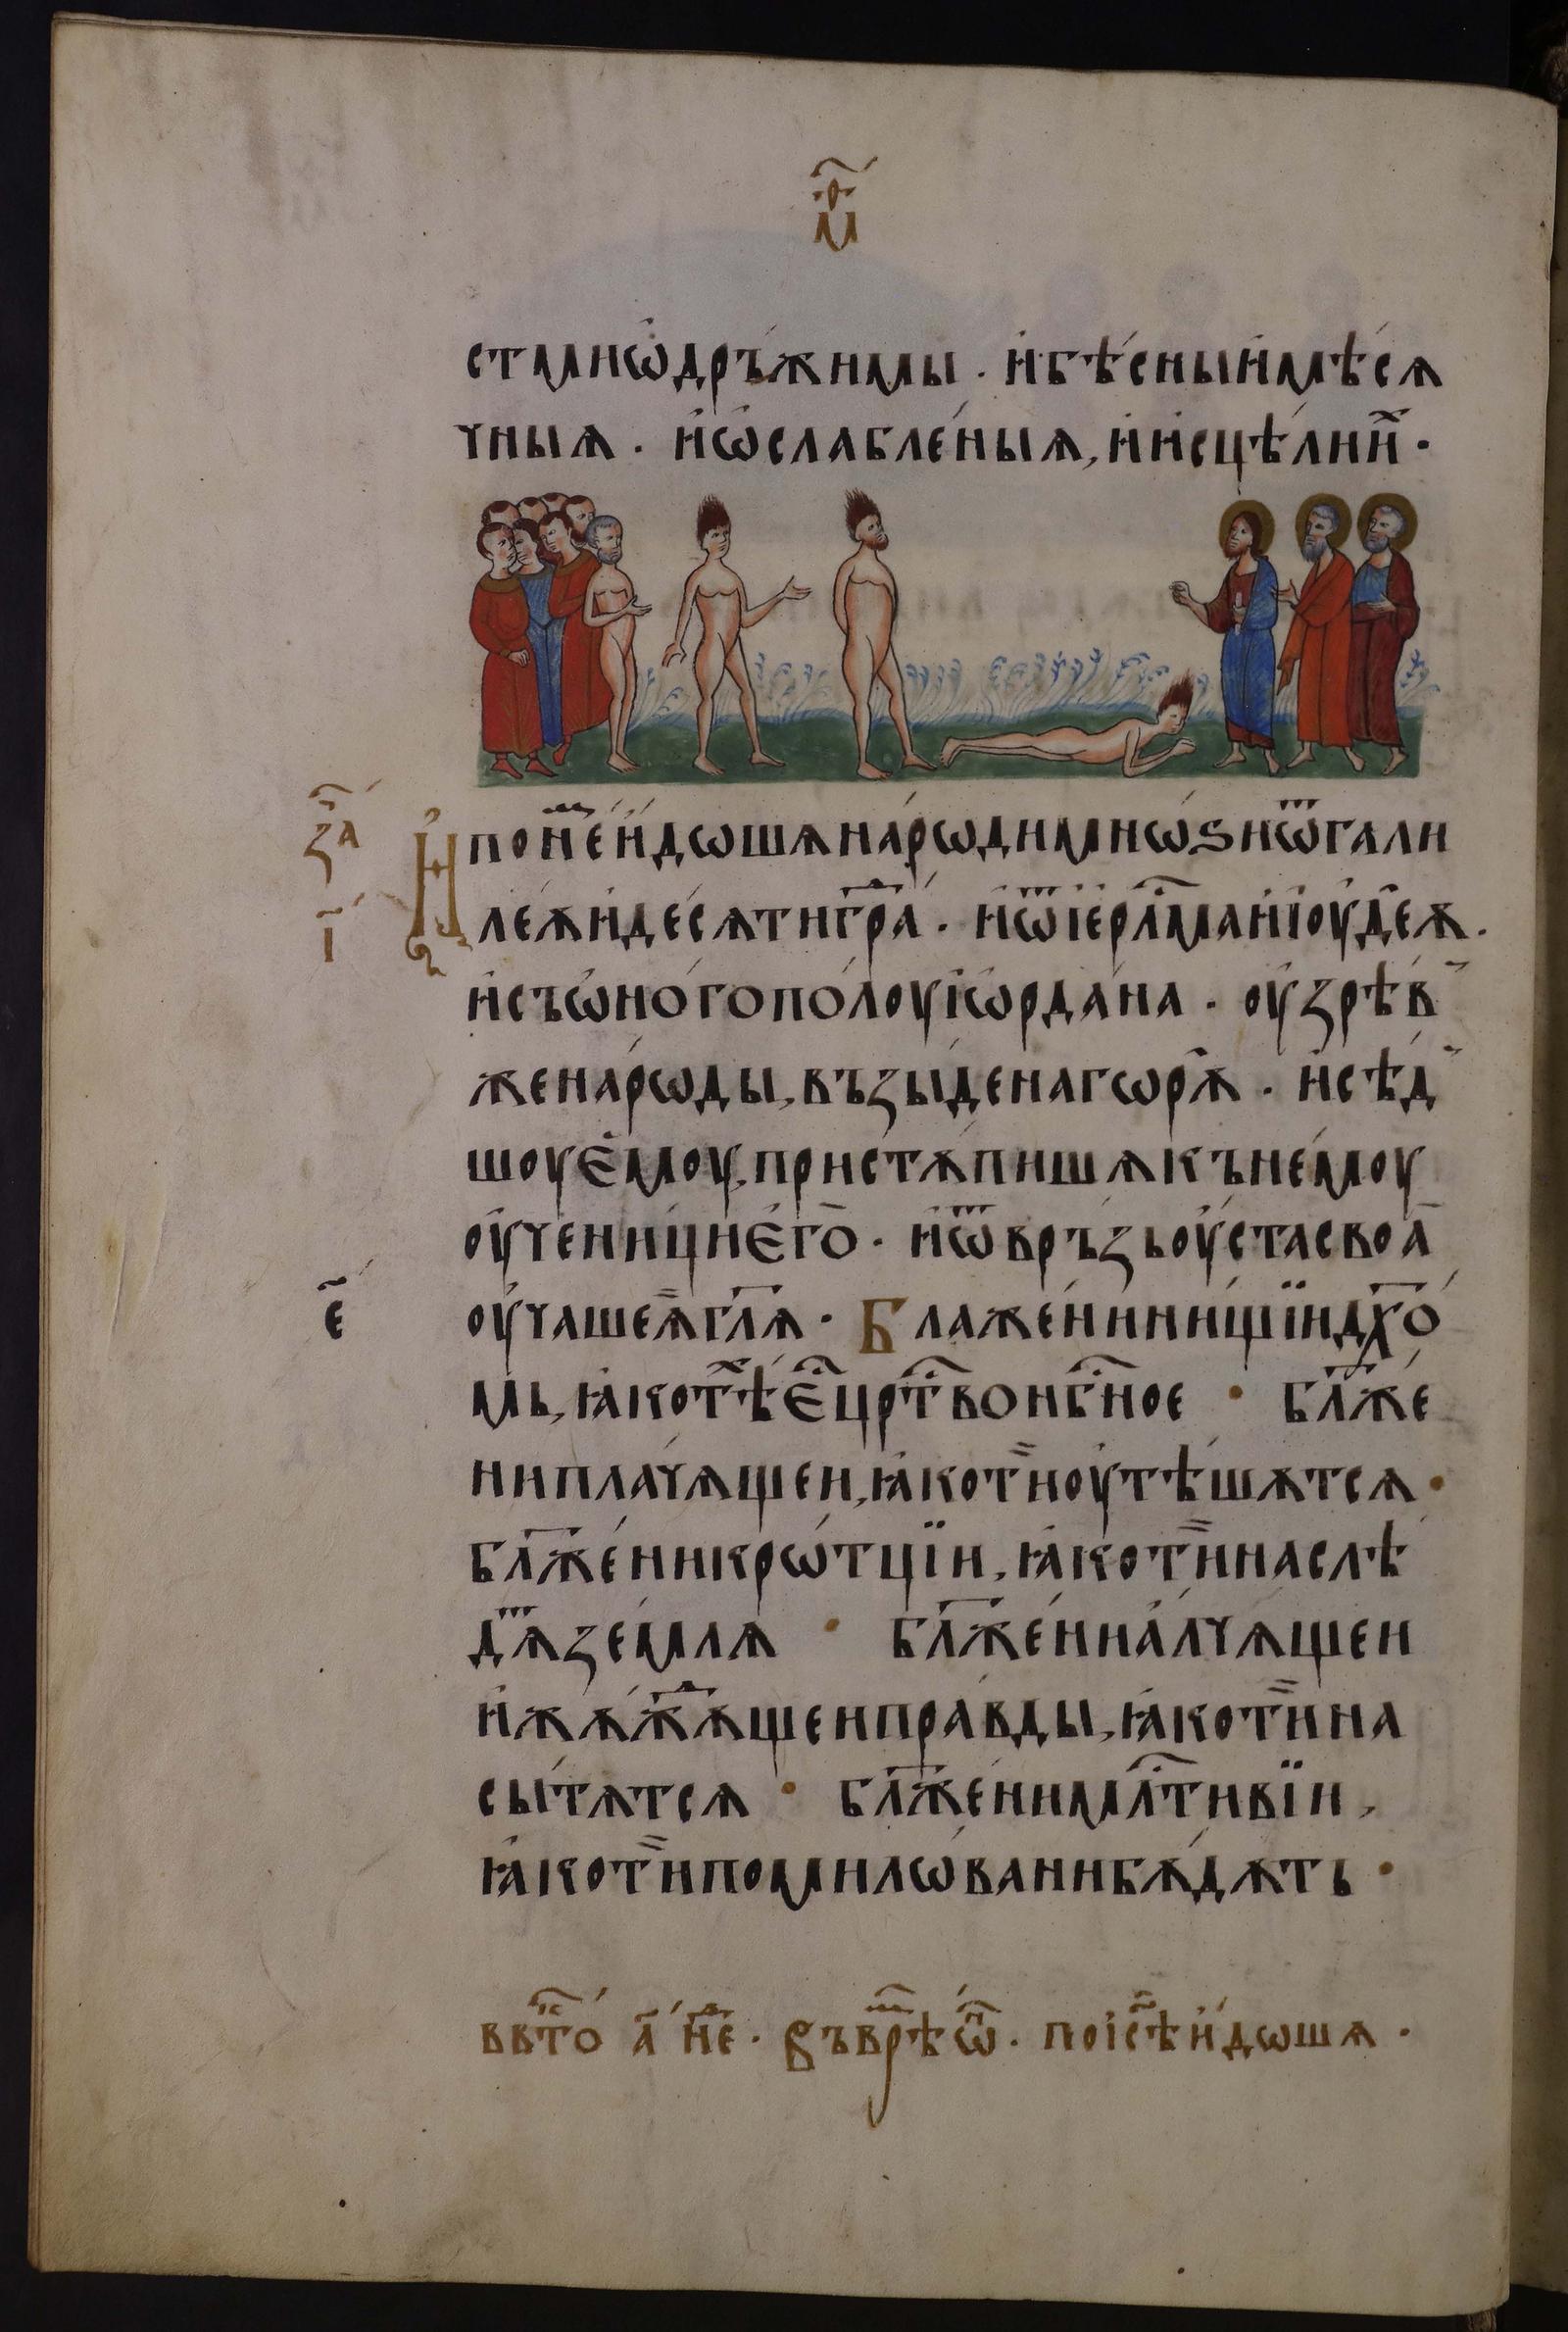 м҃
стми ѡ҆дръ́жимы · и҆ бѣ́сныѧ҆ и҆ мѣ́сѧ
чныѧ · и҆ ѡ҆слабле́ныѧ, и҆ и҆сцѣ́ли и҆х ·
за҃
И҆ по не́м и҆́дошѧ на́рѡди мнѡ́ѕи ѿ гали
ле́ѧ и҆ де́сѧти гра́д · и҆ ѿ і҆ерⷭ҇ли́ма и҆ і҆оуде́ѧ ·
і҃
и҆ съ ѡ҆́ного по́лоу і҆ѡрда́на · оу҆зрѣ́в
же на́рѡды, възы́де на гѡрѫ̀ · и҆ сѣ́д
шоу є҆моу, пристѫ́пишѧ къ не́моу
оу҆чени́ци є҆го̀ · и҆ ѿвръ́зь оу҆ста своа̀
е҃
оу҆чаше ѧ҆ гл҃ѧ · Блаже́ни ни́щїи дх҃о́
мь, ꙗ҆ко тѣ́х є҆́ цр҃тво нб҃ное · бл҃же
ни пла́чѫщеи, ꙗ҆ко ти оу҆тѣ́шѫтсѧ ·
бл҃же́ни крѡ́тцїи, ꙗ҆ко ти наслѣ
дѧ́т зе́млѧ · бл҃же́ни а҆́лчѫщеи
и҆ жѫ́ждѫщеи пра́вды, ꙗ҆ко ти на
сы́тѧтсѧ · бл҃же́ни мл҃тивїи,
ꙗ҆ко ти поми́лѡвани бѫ́дѫть ·
в вто́ а҃ не · въ врⷨѣ ѡ҆́н · по і҆сѣ и҆́дошѧ ·